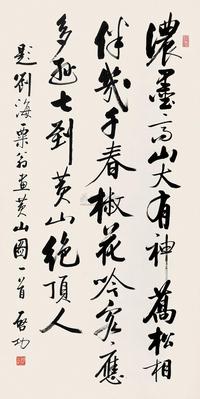 濃墨高山大有神萬松相
伴幾千春椒花吟客應
多遜七到黃山絕頂人
題劉海粟翁畫黃山圖一首 啓功